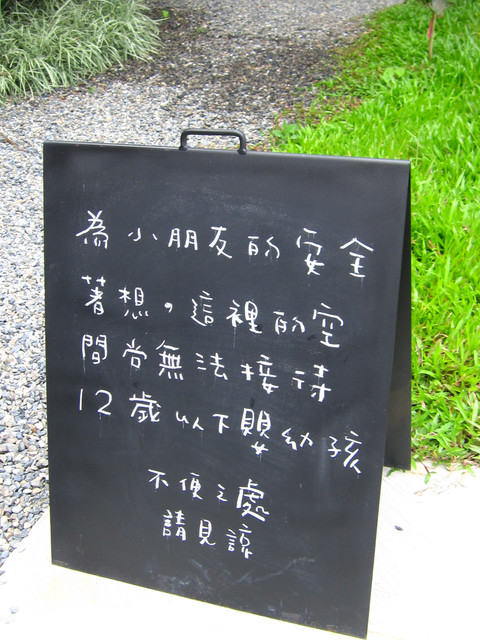 為小朋友的安全
著想，這裡的空
間尚無法接待
12歲以下嬰幼孩
不便之處
請見諒